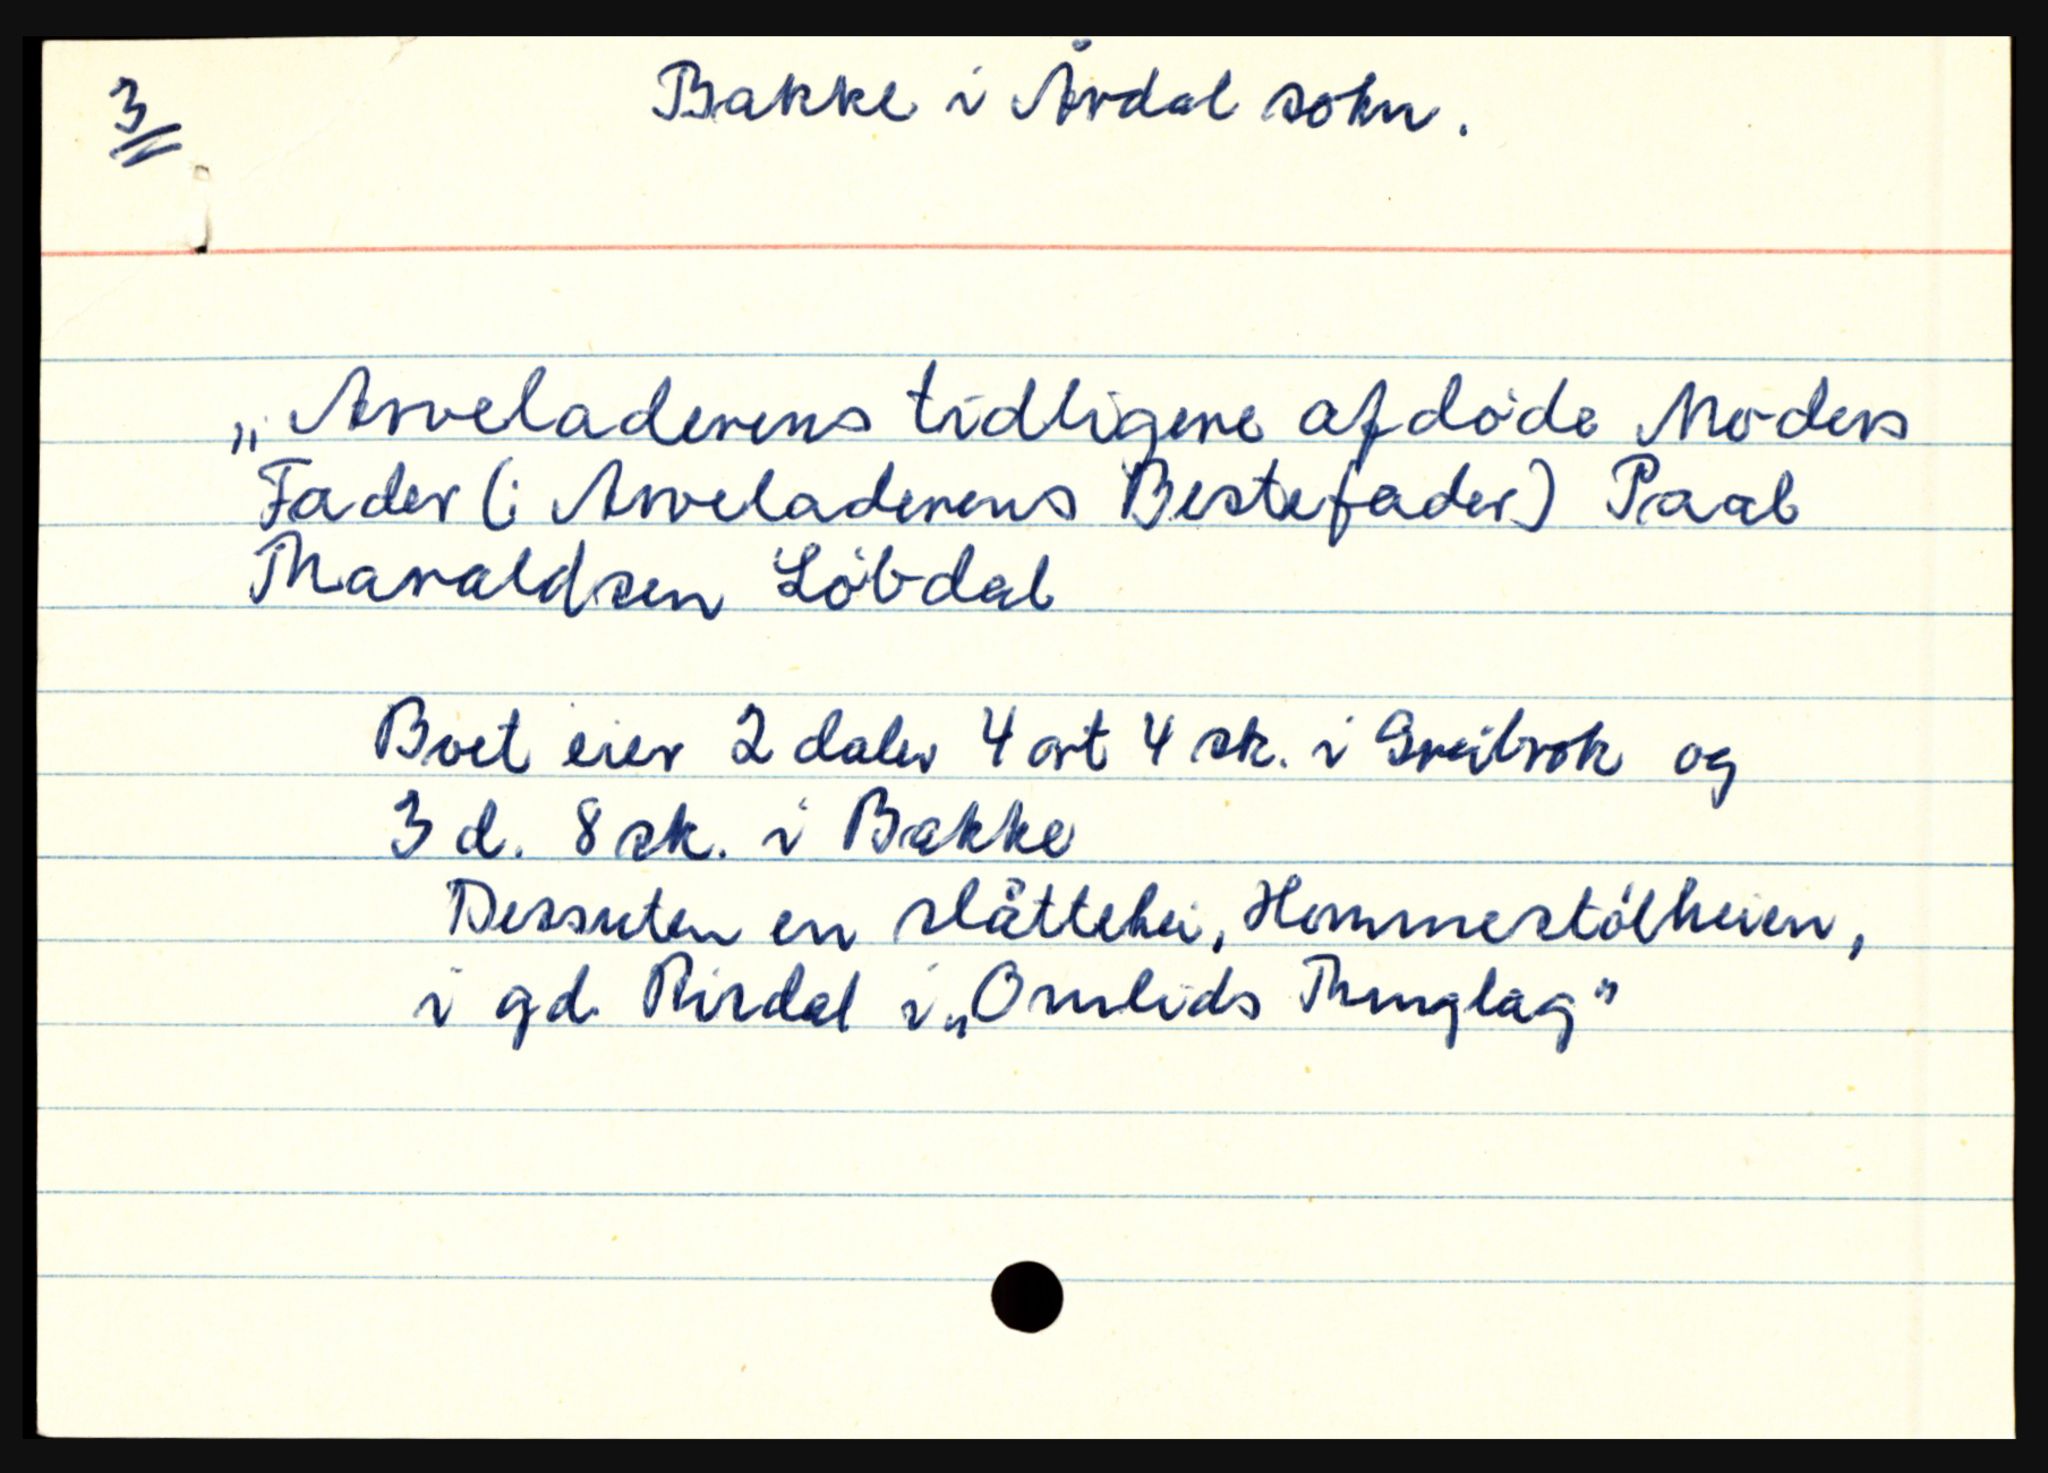 3
Bakke i Årdal sokn.
„Arveladerens tidligere afdøde Moders
Fader (: Arveladerens Bestefader) Paal
Tharaldsen Løbdal
Boet eier 2 daler 4 ort 4 sk. i Greibrok og
3 d. 8 sk. i Bakke
Dessuten en slåttehei, Hommestølheien,
i gd. Rirdal i „Omlids Thinglag"